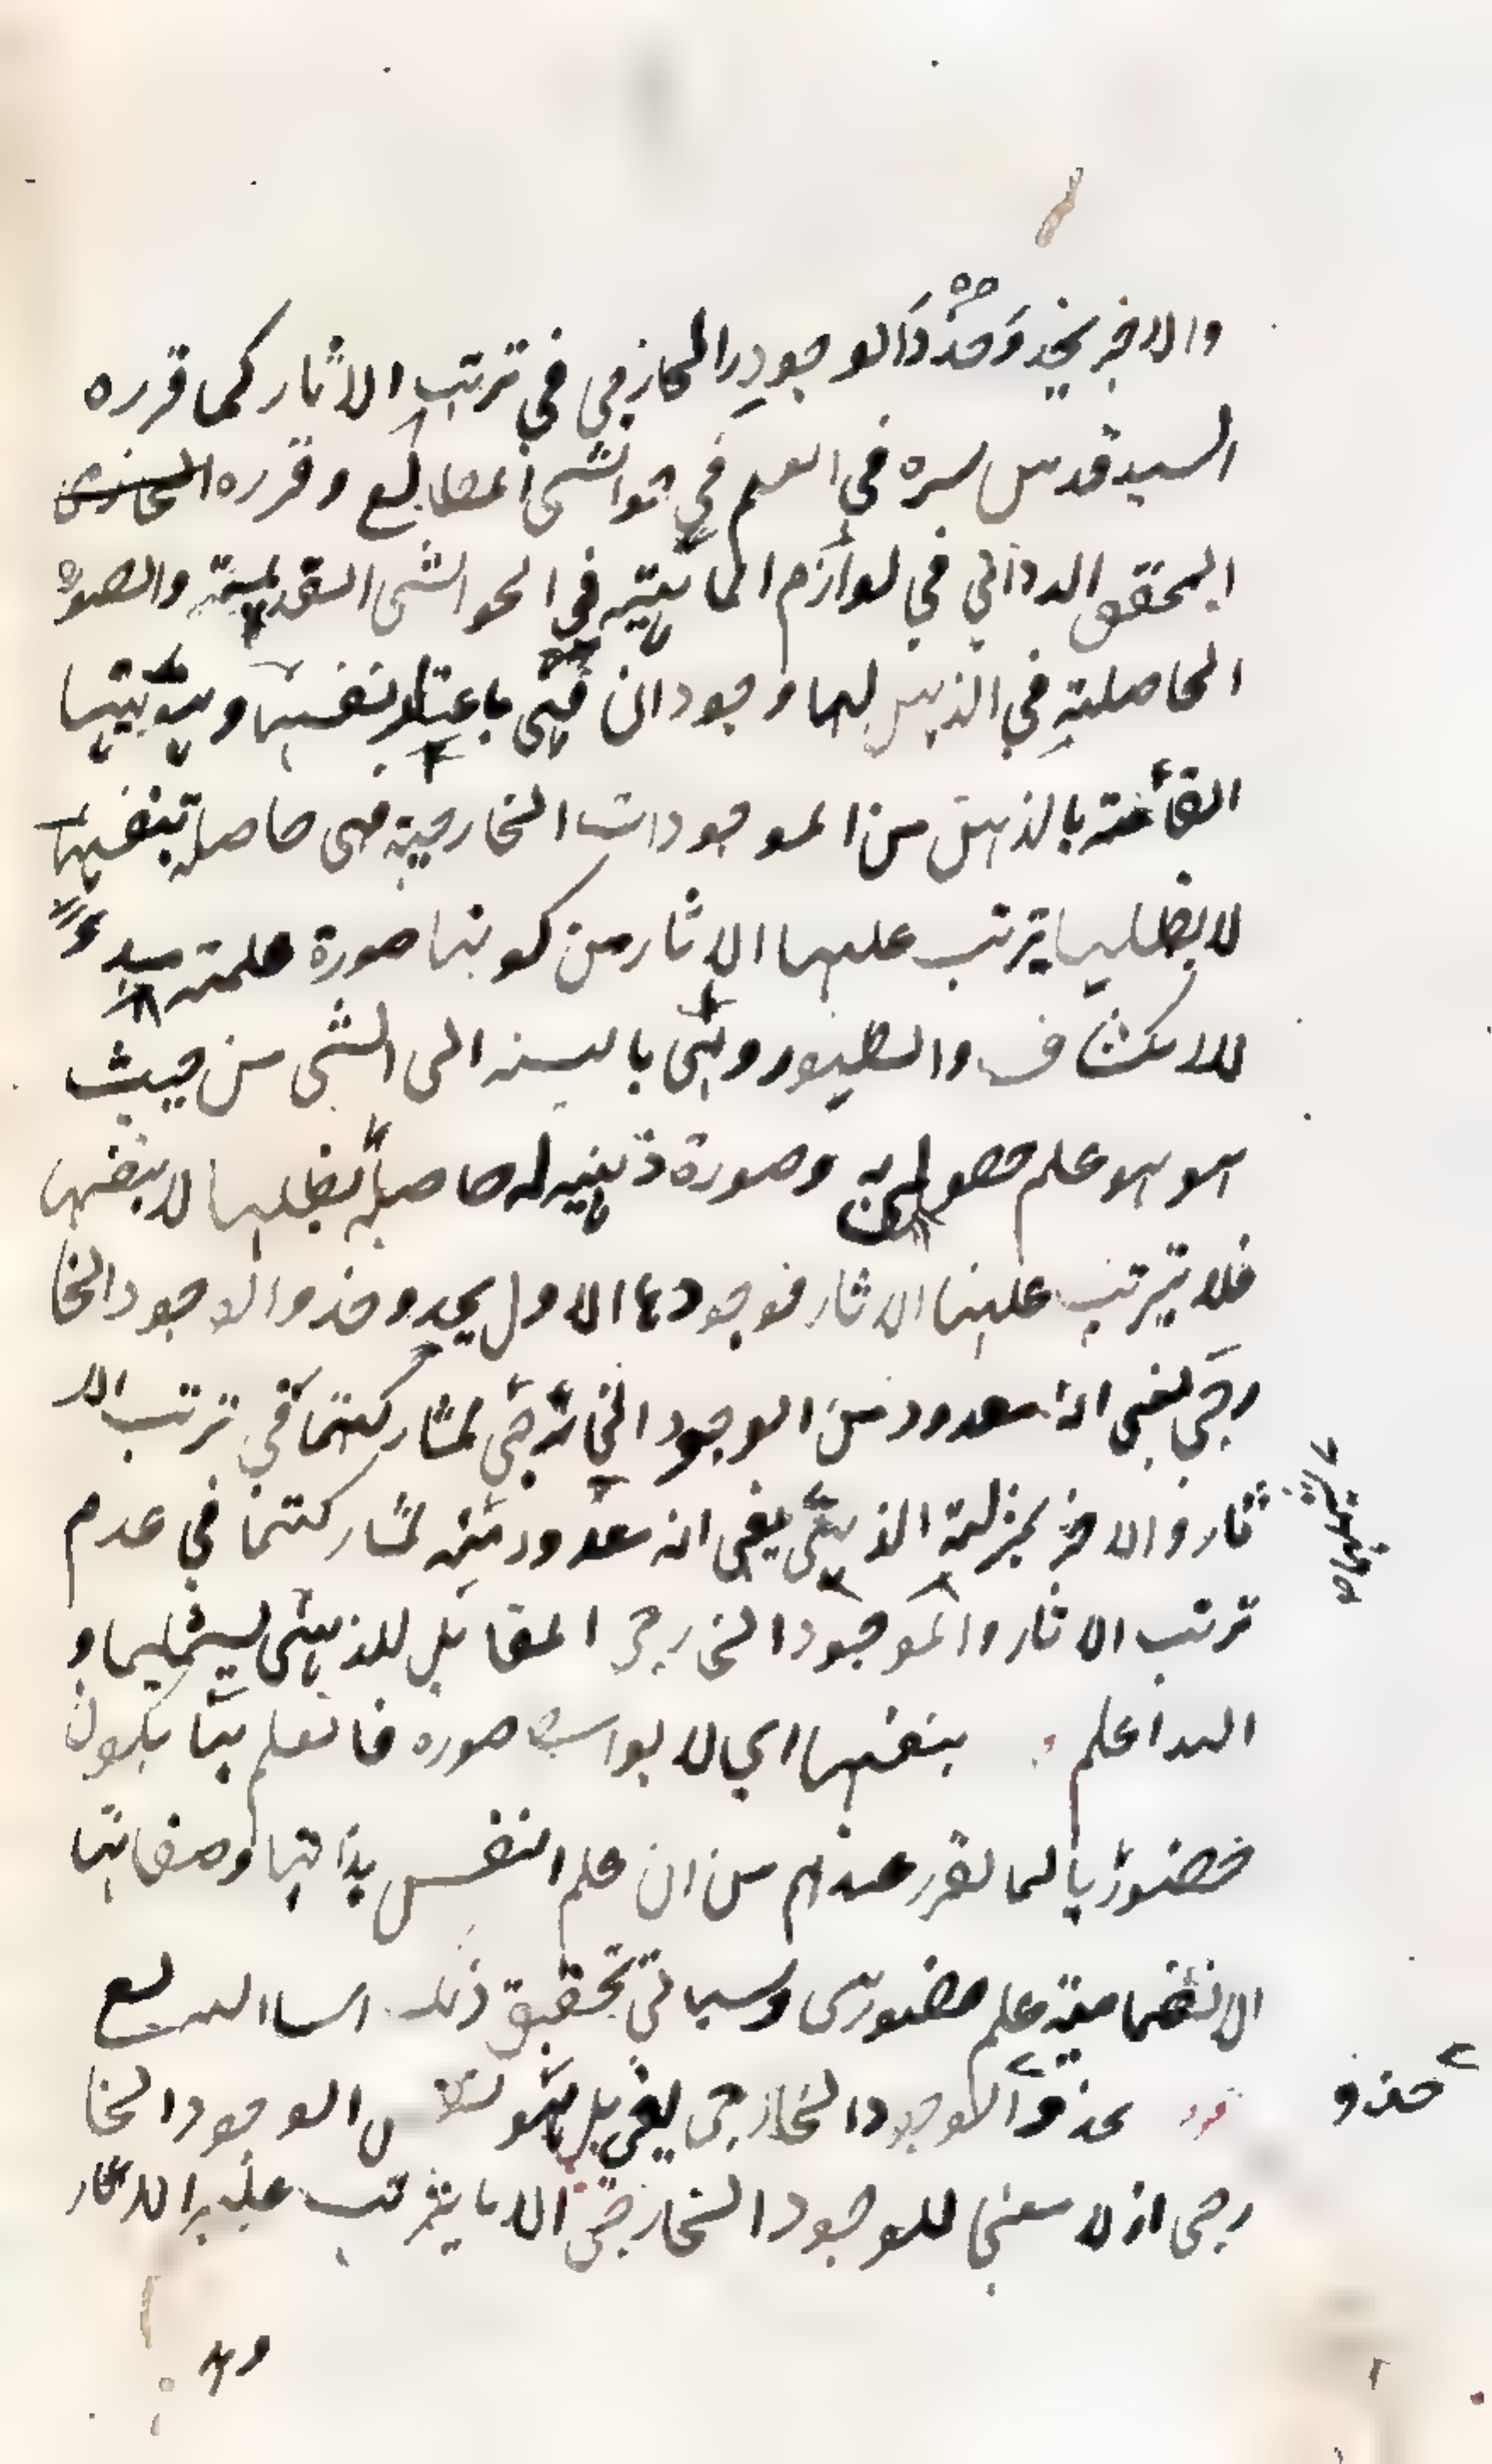 والاخر يحذو حذو الوجود الخارجي في ترتب الاثار كما قرره
السيد قدس سره في العلم في حواشي المطالع وقرره
المحقق الدواني في لوازم الماهية في الحواشي القديمة والصورة
الحاصلة في الذهن لها وجودان فهي باعتبار نفسها وهويتها
القائمة بالذهن من الموجودات الخارجية فهي حاصلة بنفسها
لا بظلها يترتب عليها الاثار من كونها صورة علمية مبدءً
للانكشاف والظهور وهي بالنسبة الى الشي من حيث
هو هو علم حصولي وصورة ذهنية له حاصلة بظلها لا بنفسها
فلا يترتب عليها الاثار فوجودها الاول يحذو حذو الوجود الخا
رجي يعني انه معدود من الوجود الخارجي لمشاركتها في ترتب الا
ثار والاخر بمنزلة الذهني يعني انه معدود منه لمشاركتها في عدم
ترتب الاثار والموجود الخارجي المقابل للذهني ليشملهما و
الله اعلم بنفسها اي لا بواسطة صورة فالعلم بها يكون
حضوريا لما تقرر عندهم من ان علم النفس بذاتها وصفاتها
الانضمامية علم حضوري وسياتي تحقيق ذلك انشا الله تع
حذو
حذو الوجود الخارجي يعني بل هو من الوجود الخا
رجي اذ لا معنى للوجود الخارجي الا ما يترتب عليه الاثار